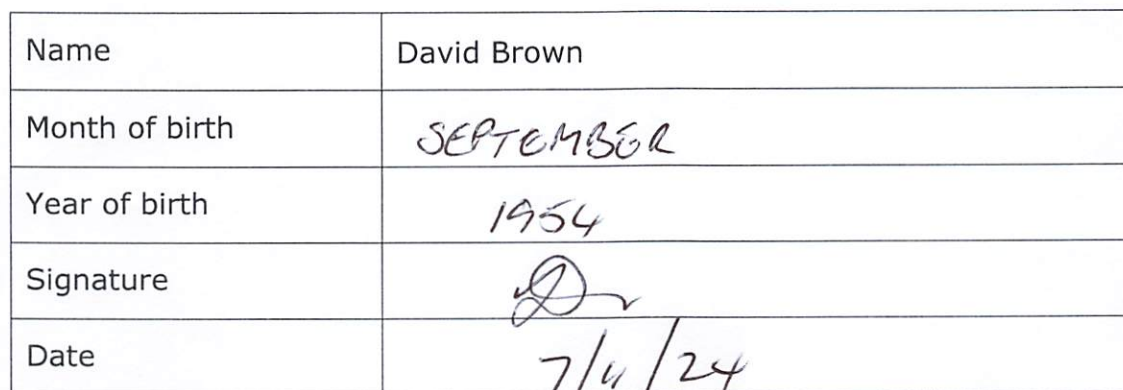 Name David Brown
Month of birth SEPTEMBER
Year of birth 1954
Signature
Date 7/11/24